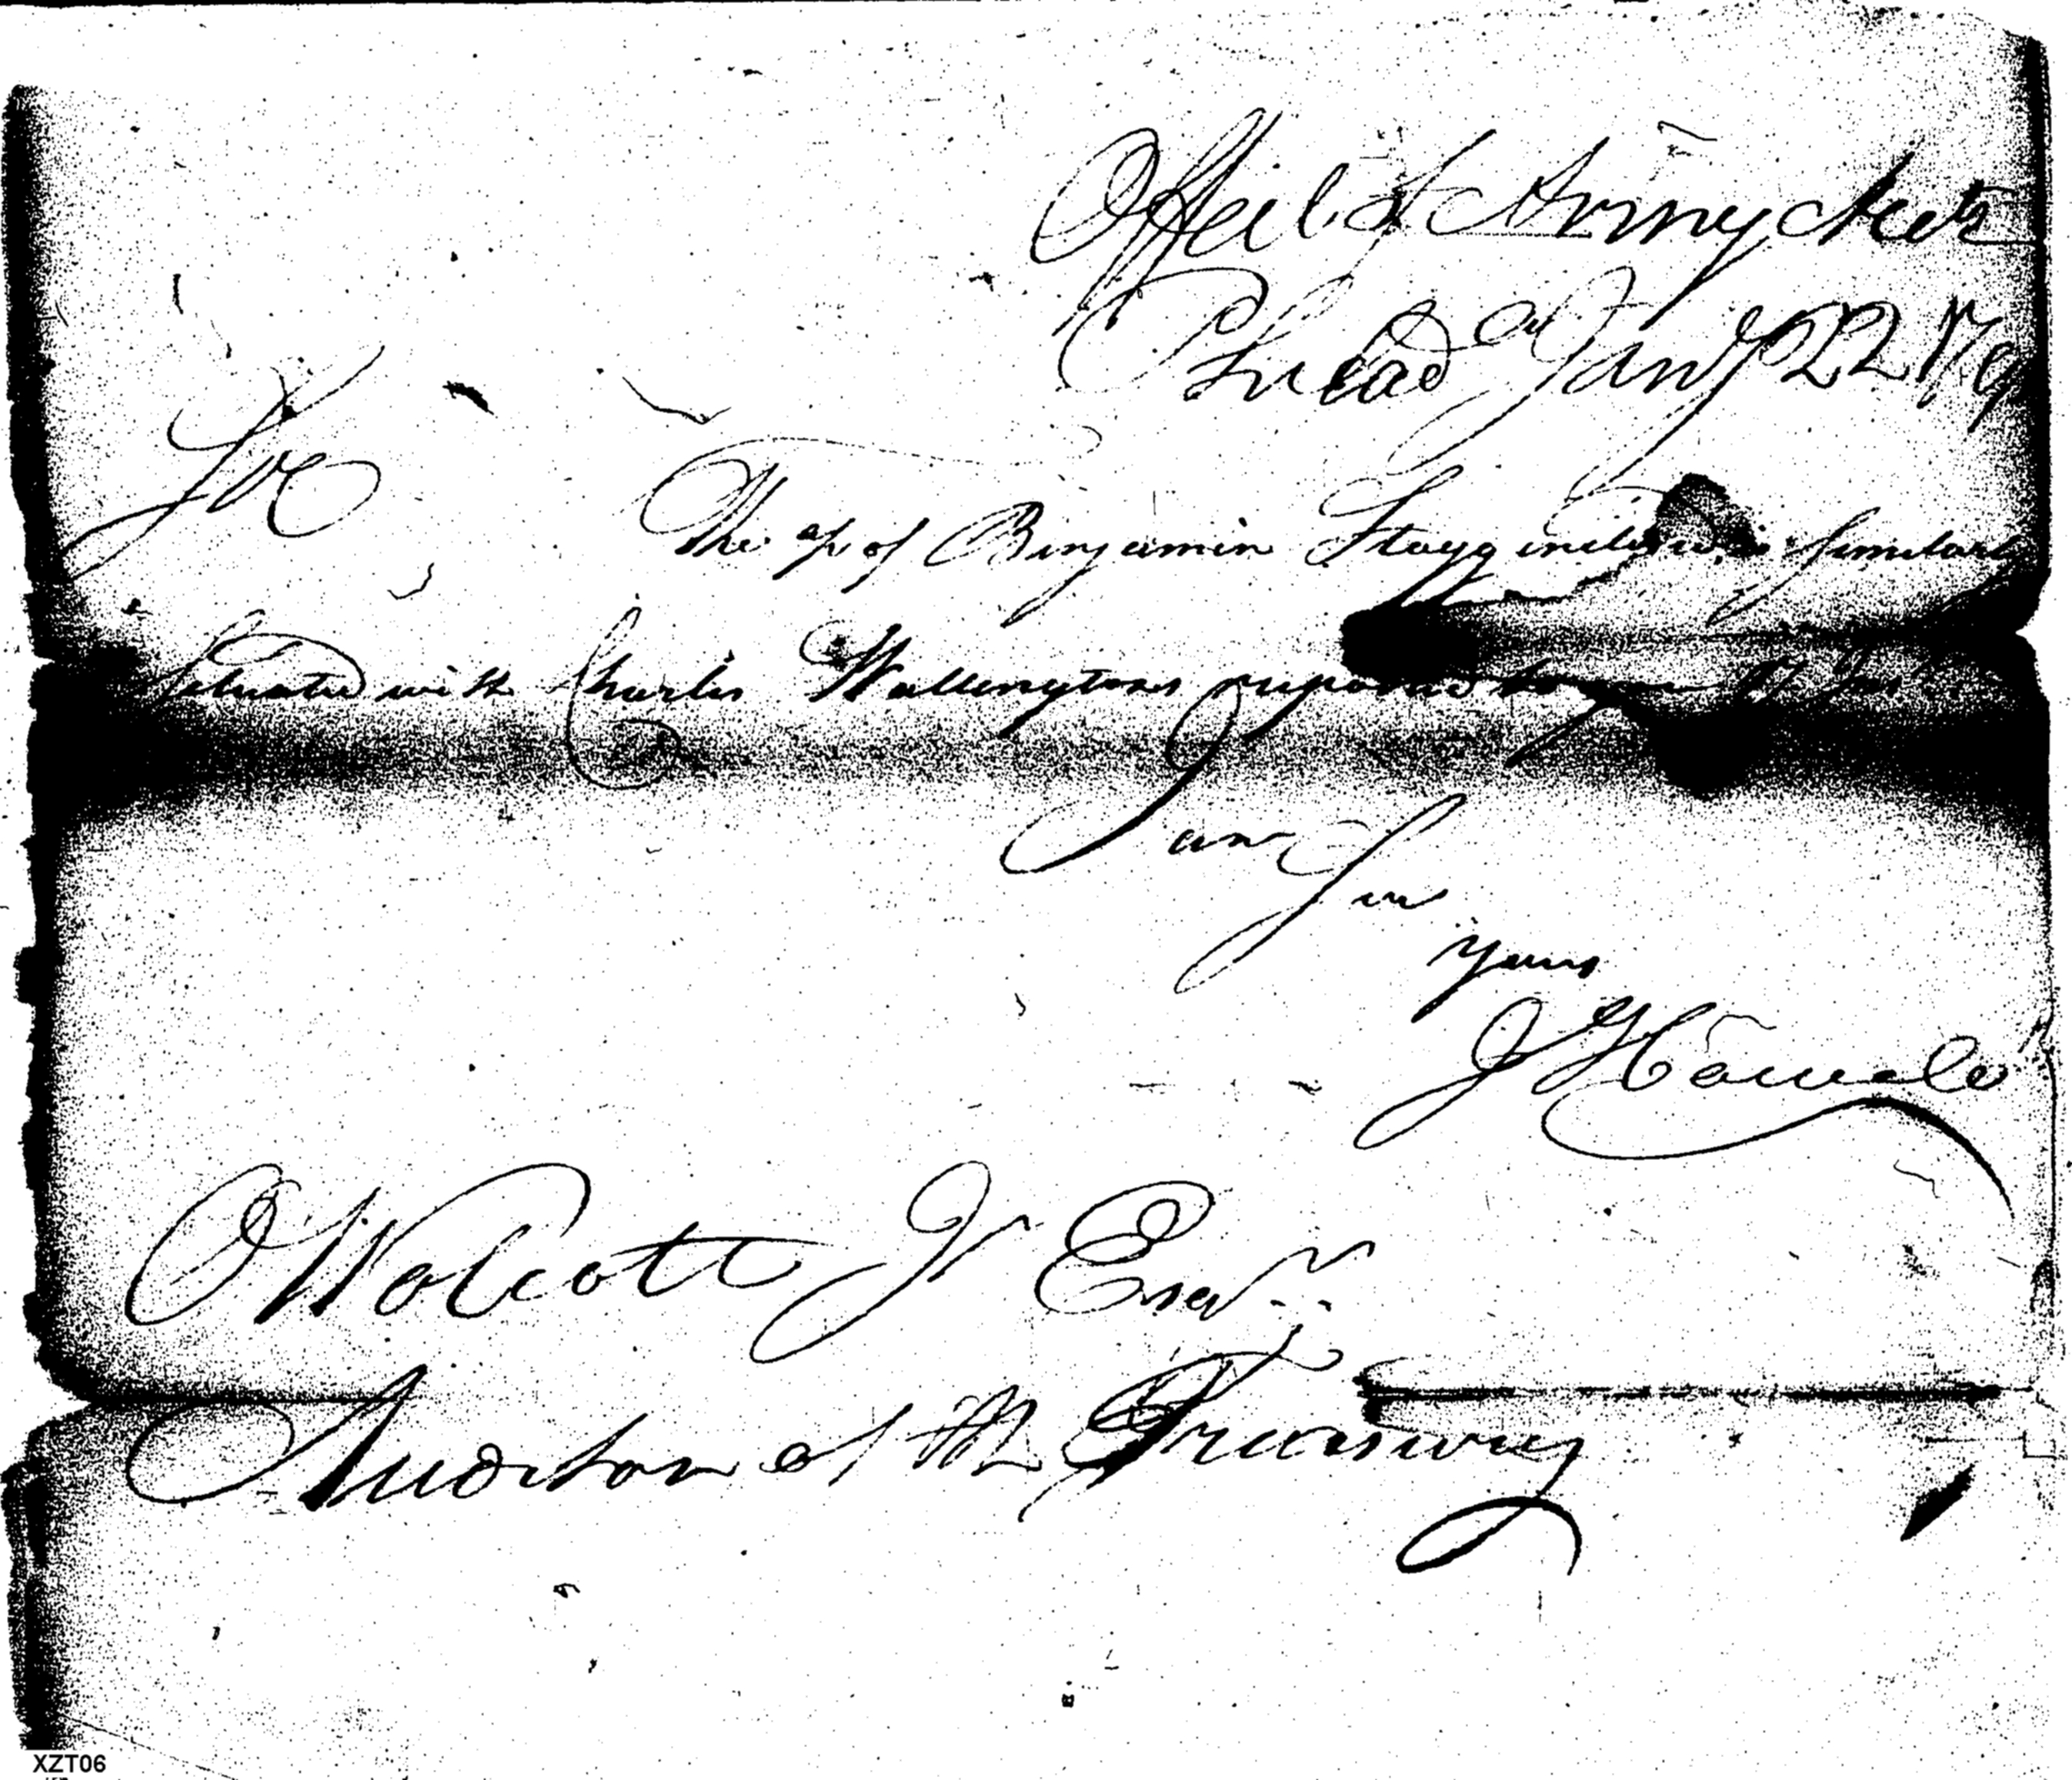 Office of Army Accts
Philad.a Jany 22 179
Sir
The ap of Benjamin Stagg inclosed is similarly
Situated with Charles Wallingtons reported to you 17 Inst
I am Sir
yours
J Howell
O Wolcott Jr Esqr.
Auditor of the Treasury
XZT06